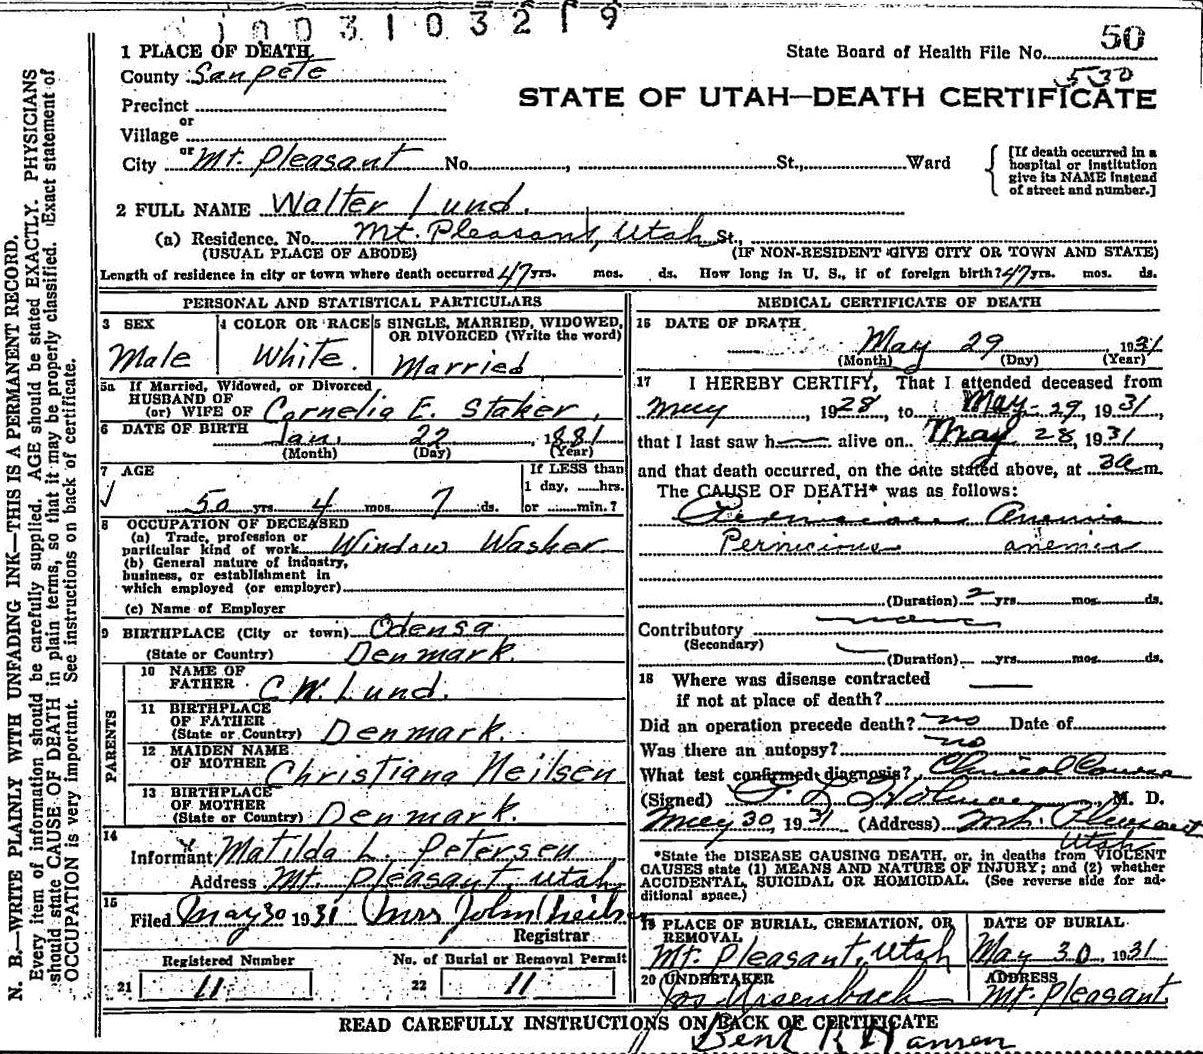 1003103219
1 PLACE OF DEATH
State Board of Health File No. 50
County Sanpete
530
STATE OF UTAH—DEATH CERTIFICATE
Precinct
or
Village
or
City Mt. Pleasant No. , St., Ward
{ [If death occurred in a hospital or institution give its NAME instead of street and number.]
2 FULL NAME Walter Lund.
(a) Residence. No. Mt. Pleasant, Utah St.,
(USUAL PLACE OF ABODE) (IF NON-RESIDENT GIVE CITY OR TOWN AND STATE)
Length of residence in city or town where death occurred 47 yrs. mos. ds. How long in U. S., if of foreign birth? 47 yrs. mos. ds.
PERSONAL AND STATISTICAL PARTICULARS
3 SEX
Male
4 COLOR OR RACE
White
5 SINGLE, MARRIED, WIDOWED, OR DIVORCED (Write the word)
Married
5a If Married, Widowed, or Divorced
HUSBAND OF
(or) WIFE OF Cornelia E. Staker
6 DATE OF BIRTH Jan. 22, 1881
(Month) (Day) (Year)
7 AGE
If LESS than
1 day, hrs.
50 yrs. 4 mos. 7 ds. or min.?
8 OCCUPATION OF DECEASED
(a) Trade, profession or
particular kind of work Window Washer
(b) General nature of industry,
business, or establishment in
which employed (or employer)
(c) Name of Employer
9 BIRTHPLACE (City or town) Odensa
(State or Country) Denmark.
PARENTS
10 NAME OF
FATHER C. W. Lund.
11 BIRTHPLACE
OF FATHER
(State or Country) Denmark.
12 MAIDEN NAME
OF MOTHER Christiana Neilsen
13 BIRTHPLACE
OF MOTHER
(State or Country) Denmark.
14
Informant Matilda L. Petersen
Address Mt. Pleasant, Utah
15
Filed May 30 1931 Mrs John
Registrar
Registered Number No. of Burial or Removal Permit
21 11 22 11
MEDICAL CERTIFICATE OF DEATH
16 DATE OF DEATH
May 29 1931
(Month) (Day) (Year)
17 I HEREBY CERTIFY, That I attended deceased from
May , 1928, to May 29, 1931,
that I last saw h alive on May 28 1931,
and that death occurred, on the date stated above, at 3a m.
The CAUSE OF DEATH* was as follows:
Pernicious Anemia
Pernicious anemia
(Duration) 2 yrs. mos. ds.
Contributory none
(Secondary)
(Duration) yrs. mos. ds.
18 Where was disease contracted
if not at place of death?
Did an operation precede death? no Date of
Was there an autopsy? no
What test confirmed diagnosis? Clinical
(Signed) M. D.
May 30, 1931 (Address) Mt. Pleasant
Utah
*State the DISEASE CAUSING DEATH, or, in deaths from VIOLENT
CAUSES state (1) MEANS AND NATURE OF INJURY; and (2) whether
ACCIDENTAL, SUICIDAL OR HOMICIDAL. (See reverse side for ad-
ditional space.)
19 PLACE OF BURIAL, CREMATION, OR
REMOVAL
Mt. Pleasant, Utah
DATE OF BURIAL
May 30, 1931
20 UNDERTAKER
Jas Ursenbach
ADDRESS
Mt. Pleasant.
READ CAREFULLY INSTRUCTIONS ON BACK OF CERTIFICATE
Bent R Hansen
N. B.—WRITE PLAINLY WITH UNFADING INK—THIS IS A PERMANENT RECORD.
Every item of information should be carefully supplied. AGE should be stated EXACTLY. PHYSICIANS
should state CAUSE OF DEATH in plain terms, so that it may be properly classified. Exact statement of
OCCUPATION is very important. See instructions on back of certificate.